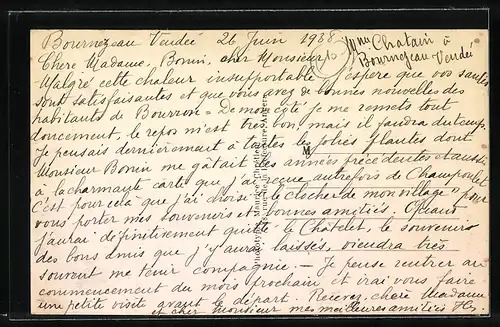 Bournezeau Vendée 26 Juin 1938
Mme Chatain à
Bournezeau-Vendée
Chère Madame Bonin, cher Monsieur,
Malgré cette chaleur insupportable j'espère que vos santés
sont satisfaisantes et que vous avez de bonnes nouvelles des
habitants de Bourron = De mon côté je me remets tout
doucement, le repos m'est très bon, mais il faudra du temps.
Je pensais dernièrement à toutes les jolies plantes dont
Monsieur Bonin me gâtait les années précédentes et aussi
à la charmante carte que j'ai reçue autrefois de Champoulet
C'est pour cela que j'ai choisi "le clocher de mon village" pour
vous porter mes souvenirs et bonnes amitiés. Quand
j'aurai définitivement quitté le Châtelet, le souvenir
des bons amis que j'y aurai laissés, viendra très
souvent me tenir compagnie. — Je pense rentrer au
commencement du mois prochain et irai vous faire
une petite visite avant le départ. Recevez, chère Madame
et cher Monsieur mes meilleures amitiés